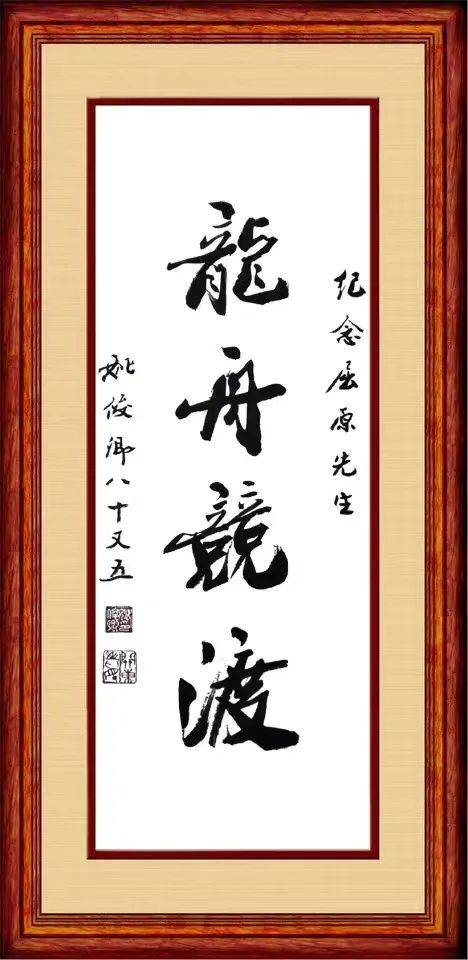 纪念屈原先生
龍舟競渡
姚俊卿八十又五